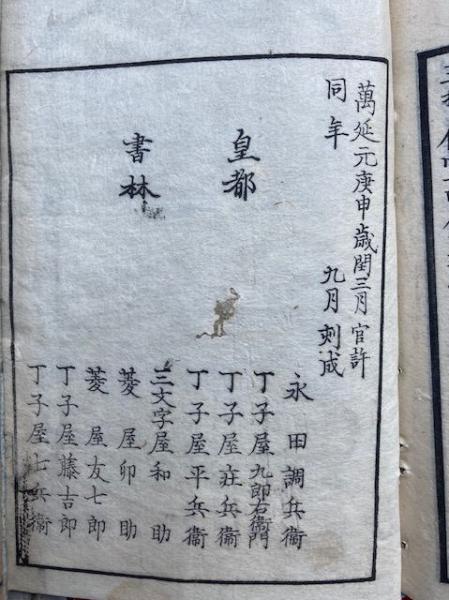 萬延元庚申歳閏三月官許
同年 九月刻成
皇都
書林
永田調兵衞
丁子屋九郎右衞門
丁子屋莊兵衞
丁子屋平兵衞
三文字屋和助
菱屋卯助
菱屋友七郎
丁子屋藤吉郎
丁子屋七兵衞